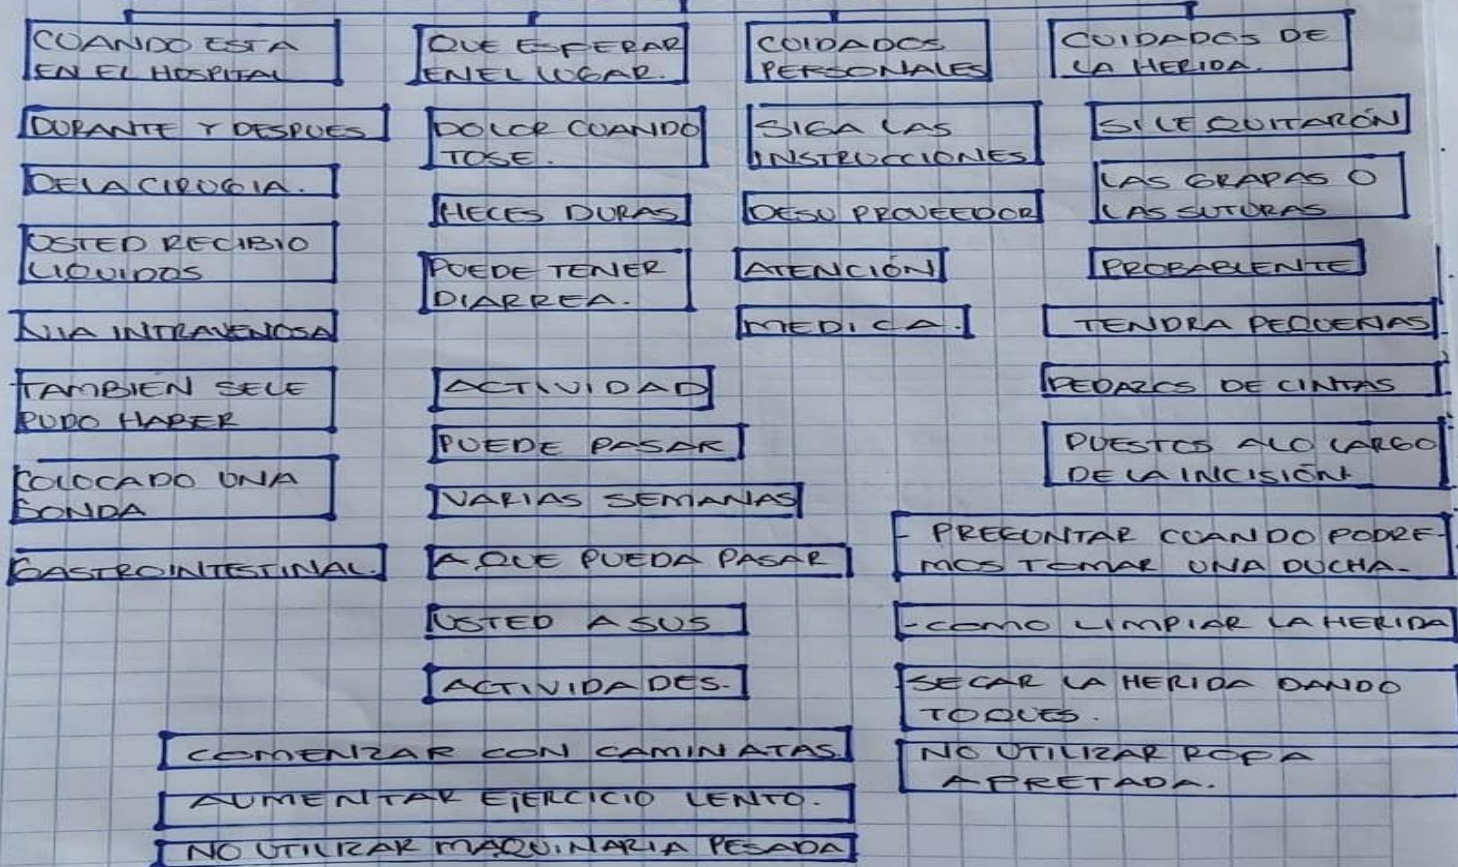 CUANDO ESTA
EN EL HOSPITAL
DURANTE Y DESPUES
DE LA CIRUGIA.
USTED RECIBIO
LIQUIDOS
VIA INTRAVENOSA
TAMBIEN SELE
PUDO HABER
COLOCADO UNA
SONDA
GASTROINTESTINAL.
QUE ESPERAR
EN EL LUGAR.
DOLOR CUANDO
TOSE.
HECES DURAS
PUEDE TENER
DIARREA.
ACTIVIDAD
PUEDE PASAR
VARIAS SEMANAS
A QUE PUEDA PASAR
USTED A SUS
ACTIVIDADES.
COMENZAR CON CAMINATAS
AUMENTAR EJERCICIO LENTO.
NO UTILIZAR MAQUINARIA PESADA
CUIDADOS
PERSONALES
SIGA LAS
INSTRUCCIONES
DE SU PROVEEDOR
ATENCIÓN
MEDICA.
CUIDADOS DE
LA HERIDA.
SI LE QUITARÓN
LAS GRAPAS O
LAS SUTURAS
PROBABLENTE
TENDRA PEQUEÑAS
PEDAZOS DE CINTAS
PUESTOS ALO LARGO
DE LA INCISIÓN
- PREGUNTAR CUANDO PODRE-
MOS TOMAR UNA DUCHA.
- COMO LIMPIAR LA HERIDA
SECAR LA HERIDA DANDO
TOQUES.
NO UTILIZAR ROPA
APRETADA.